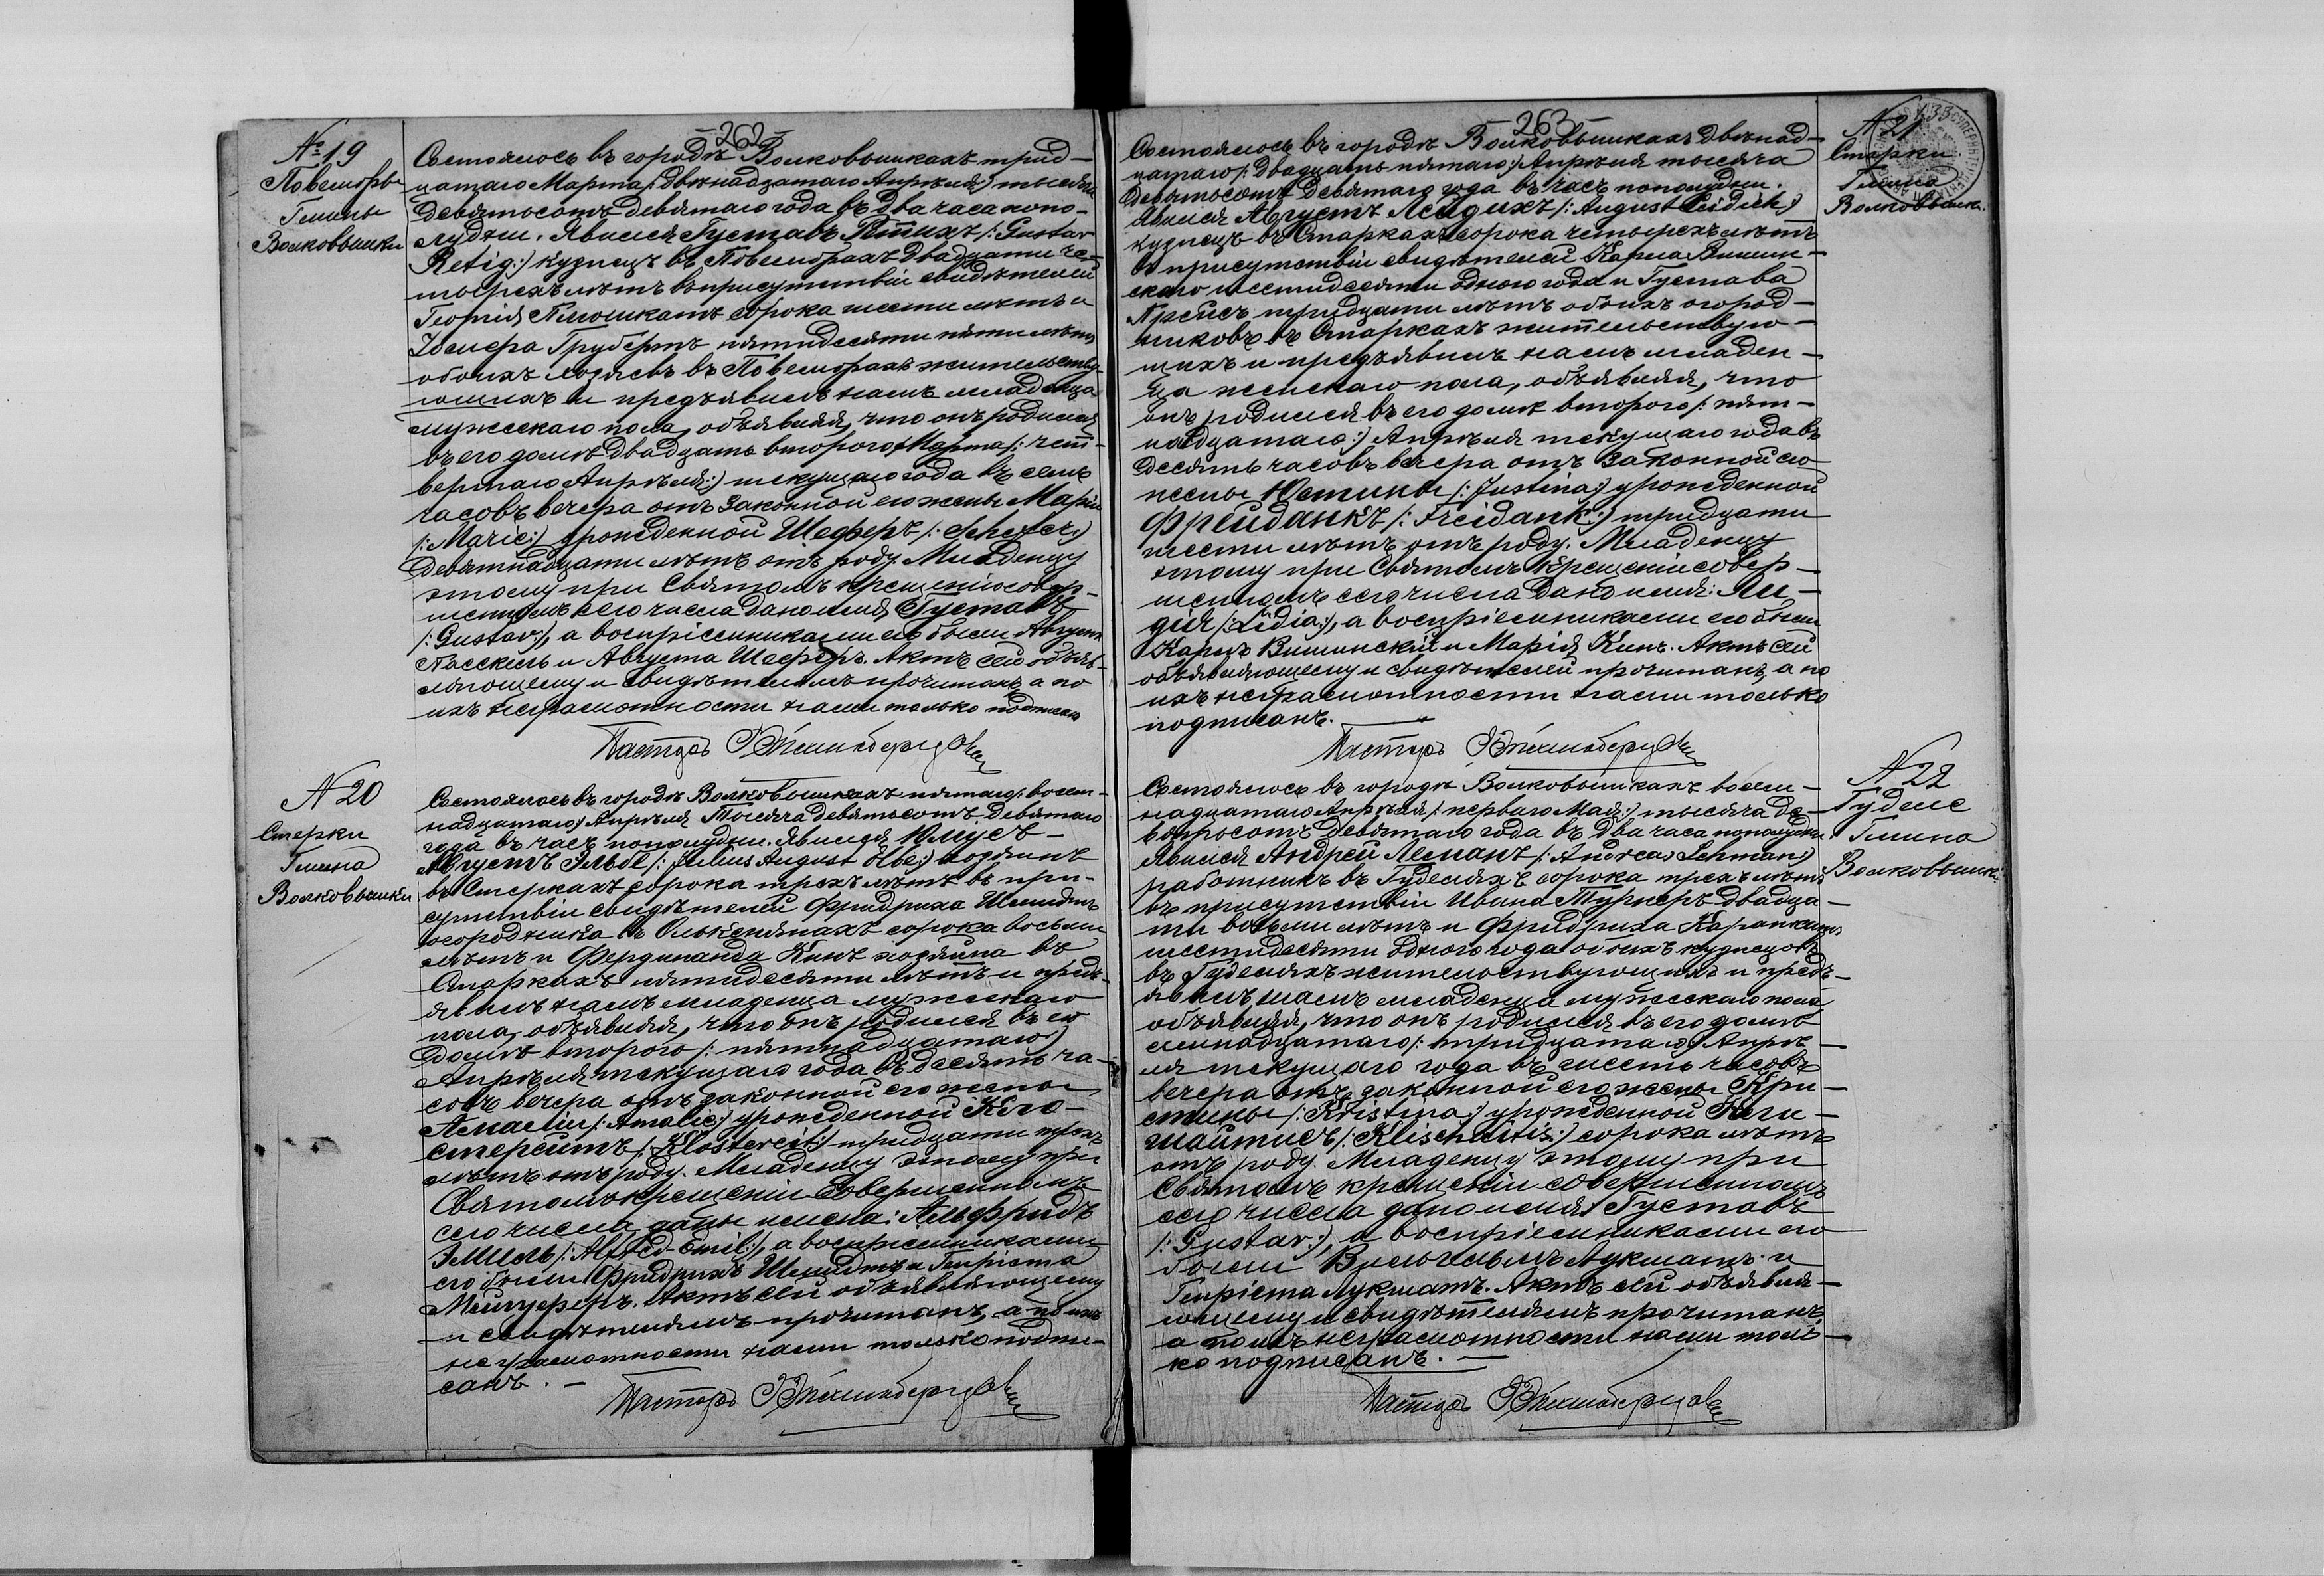 -262-
№ 19
Повемборы
Гмины
Волковышки
Состоялось въ городѣ Волковышкахъ трид-
цатаго Марта /: двѣнадцатаго Апрѣля :/ тысяча
девятьсотъ девятаго года въ два часа попо-
лудни. Явился Густавъ Ретихъ /: Gustav
Retig :/ кузнецъ въ Повемборахъ двадцати че-
тырехъ лѣтъ въ присутствіи свидѣтелей
Георгія сорока шести лѣтъ и
Грубертъ пятидесяти пяти лѣтъ
обоихъ хозяевъ въ Повемборахъ жительству-
ющихъ и предъявилъ намъ младенца
мужескаго пола, объявляя, что онъ родился
въ его домѣ двадцать втораго Марта /: чет-
вертаго Апрѣля :/ текущаго года въ семь
часовъ вечера отъ законной его жены Маріи
/: Marie :/ урожденной Шеферъ /: Schefer :/
девятнадцати лѣтъ отъ роду. Младенцу
этому при Святомъ крещеніи совер-
шенномъ сего числа дано имя Густавъ
/: Gustav :/, а воспріемниками его были Августъ
и Августа Шеферъ. Актъ сей объяв-
ляющему и свидѣтелямъ прочитанъ, а по
ихъ неграмотности нами только подписанъ
Пасторъ
N 20
Стерки
Гмина
Волковышки
Состоялось въ городѣ Волковышкахъ пятаго /: восем-
надцатаго :/ Апрѣля Тысяча девятьсотъ девятаго
года въ часъ пополудни. Явился Юлiусъ-
Августъ Эльбе /: Julius August Elbe :/ хозяинъ
въ Стеркахъ сорока трехъ лѣтъ въ при-
сутствіи свидѣтелей Фридриха Шмидтъ
огородника въ сорока восьми
лѣтъ и Фердинанда Кинъ хозяина въ
Старкахъ пятидесяти лѣтъ и предъ-
явилъ намъ младенца мужескаго
пола, объявляя, что онъ родился въ его
домѣ втораго /: пятнадцатаго :/
Апрѣля текущаго года въ десять ча-
совъ вечера отъ законной его жены
Амаліи /: Amalie :/ урожденной Кло-
стерейтъ /: Klostereit :/ тридцати трехъ
лѣтъ отъ роду. Младенцу этому при
Святомъ крещеніи совершенномъ
сего числа даны имена: Альфридъ
Эмиль /: Alfred-Emil :/, а воспріемниками
его были Фридрихъ Шмидтъ и Генріета
Актъ сей объявляющему
и свидѣтелямъ прочитанъ, а по ихъ
неграмотности нами только подпи-
санъ. -
Пасторъ
-263-
N 21
Старки
Гмина
Волковышк.
Состоялось въ городѣ Волковышкахъ двѣнад-
цатаго /: двадцать пятаго :/ Апрѣля тысяча
девятьсотъ девятаго года въ часъ пополудни.
Явился Августъ Лейдихъ /: August Leidich :/
кузнецъ въ Старкахъ сорока четырехъ лѣтъ
въ присутствіи свидѣтелей Карла Вишин-
скаго шестидесяти одного года и Густава
Крейсъ тридцати лѣтъ обоихъ огород-
никовъ въ Старкахъ жительствую-
щихъ и предъявилъ намъ младен-
ца женскаго пола, объявляя, что
онъ родился въ его домѣ втораго /: пят-
надцатаго :/ Апрѣля текущаго года въ
десять часовъ вечера отъ законной его
жены Юстины /: Justina :/ урожденной
Фрейданкъ /: Freidank :/ тридцати
шести лѣтъ отъ роду. Младенцу
этому при Святомъ крещеніи совер-
шенномъ сего числа дано имя: Ли-
дія /: Lidia :/, а воспріемниками его были
Карлъ Вишинскій и Марія Кинъ. Актъ сей
объявляющему и свидѣтелей прочитанъ, а по
ихъ неграмотности нами только
подписанъ. -
Пасторъ
N 22
Гуделе
Гмина
Волковышки
Состоялось въ городѣ Волковышкахъ восем-
надцатаго Апрѣля /: перваго Мая :/ тысяча де-
вятьсотъ девятаго года въ два часа пополудни.
Явился Андрей Леманъ /: Andreas Lehman :/
работникъ въ Гуделяхъ сорока трехъ лѣтъ
въ присутствіи Ивана Турнеръ двадца-
ти восьми лѣтъ и Фридриха
шестидесяти одного года обоихъ кузнецовъ
въ Гуделяхъ жительствующихъ и предъ-
явилъ намъ младенца мужескаго пола
объявляя, что онъ родился въ его домѣ
семнадцатаго /: тридцатаго :/ Апрѣ-
ля текущаго года въ шесть часовъ
вечера отъ законной его жены Кри-
стины /: Kristina :/ урожденной Кли-
шайтисъ /: Klischaitis :/ сорока лѣтъ
отъ роду. Младенцу этому при
Святомъ крещеніи совершенномъ
сего числа дано имя Густавъ
/: Gustav :/, а воспріемниками его
были Вильгельмъ Лукматъ и
Генріета Лукматъ. Актъ сей объявля-
ющему и свидѣтелямъ прочитанъ,
а по ихъ неграмотности нами толь-
ко подписанъ. -
Пасторъ